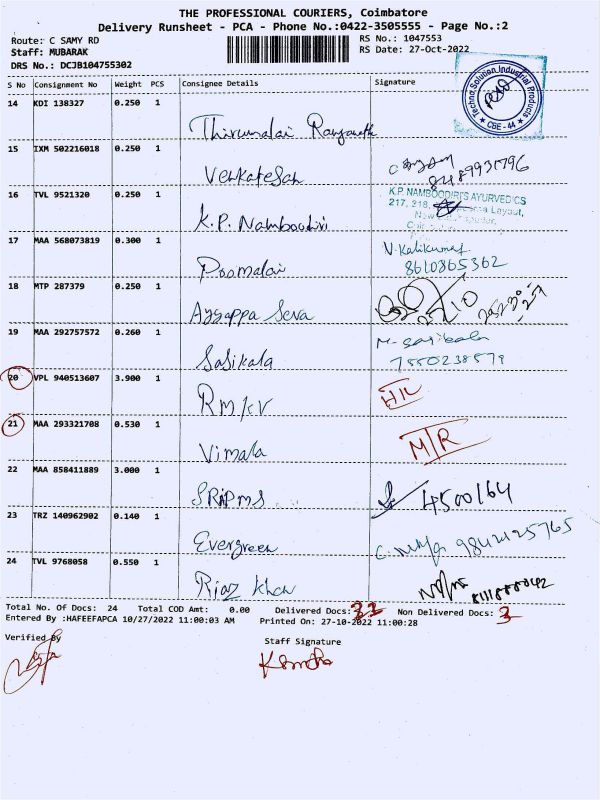 THE PROFESSIONAL COURIERS, Coimbatore
Delivery Runsheet - PCA - Phone No.:0422-3505555 - Page No.:2
Route: C SAMY RD
RS No.: 1047553
Staff: MUBARAK
RS Date: 27-Oct-2022
DRS No.: DCJB104755302
S No Consignment No Weight PCS Consignee Details Signature
Techno Solution Industrial Products
CBE - 44
14 KDI 138327 0.250 1
Thirumalai Ranganath
15 IXM 502216018 0.250 1
Venkatesan
16 TVL 9521320 0.250 1
K.P. Namboodiri
K.P. NAMBOODIRI'S AYURVEDICS
217, 218, Layout,
17 MAA 568073819 0.300 1
Poomalai
V. Kalikumar
8610865362
18 MTP 287379 0.250 1
Ayyappa Seva
19 MAA 292757572 0.260 1
Sasikala
M. Sasikala
7550238579
20 VPL 940513607 3.900 1
RMKV
H/L
21 MAA 293321708 0.530 1
Vimala
M/R
22 MAA 858411889 3.000 1
SRIPMS
4500164
23 TRZ 140962902 0.140 1
Evergreen
9842125765
24 TVL 9768058 0.550 1
Riaz Khan
Total No. Of Docs: 24 Total COD Amt: 0.00 Delivered Docs: Non Delivered Docs: 3
Entered By :HAFEEFAPCA 10/27/2022 11:00:03 AM Printed On: 27-10-2022 11:00:28
Verified By
Staff Signature